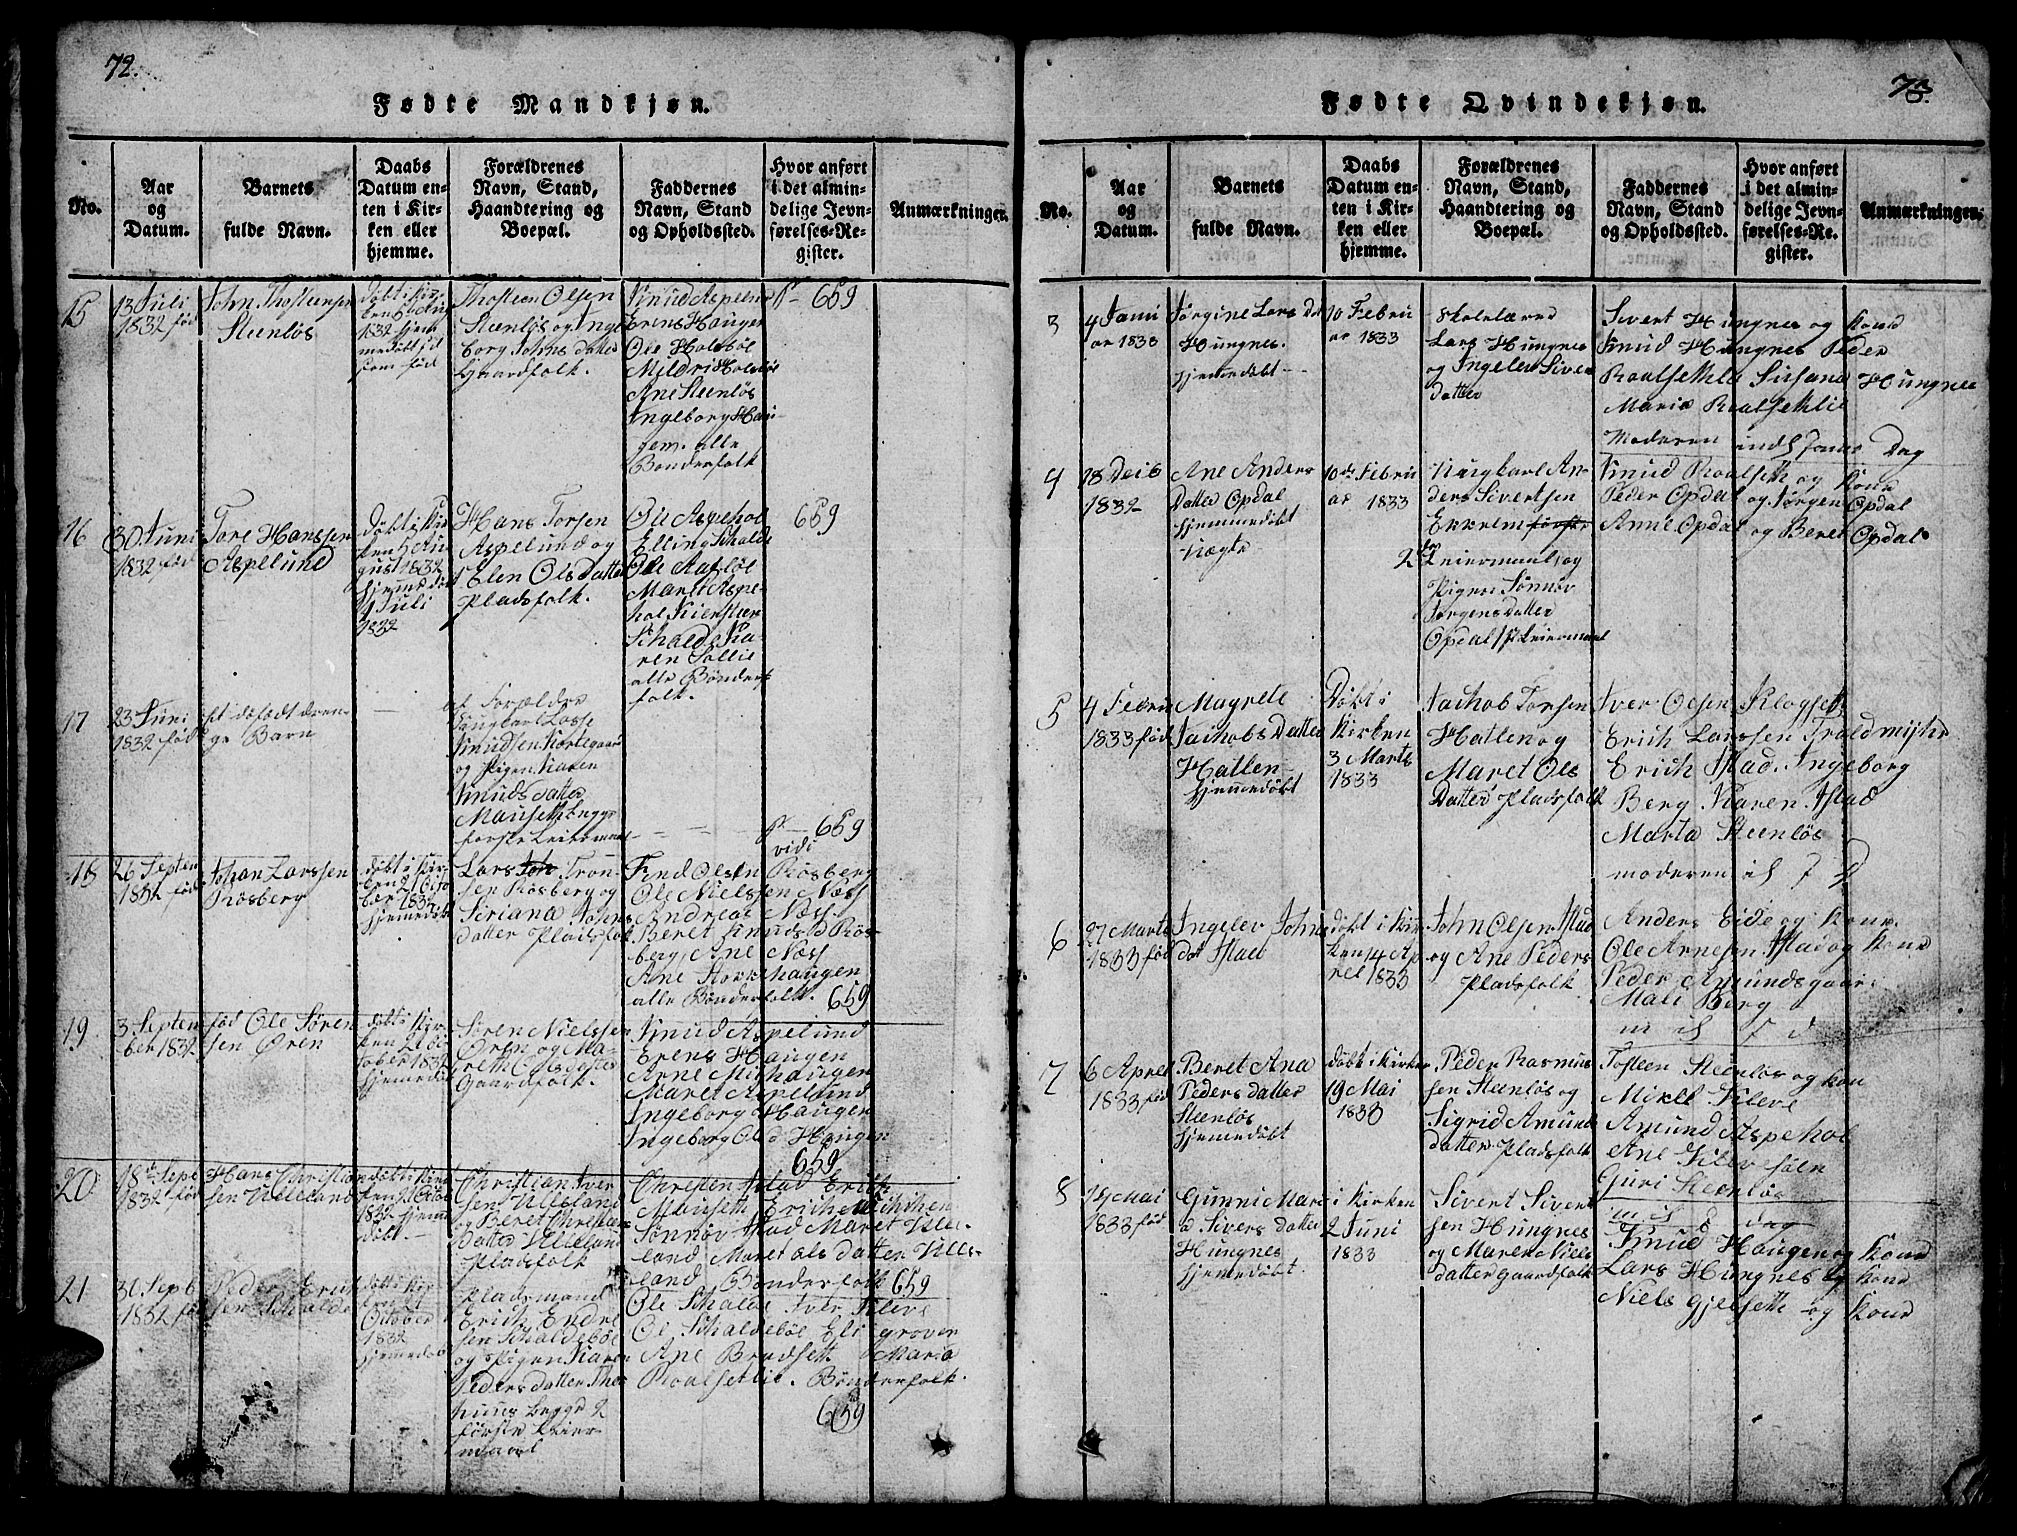 72.
Fødte Mandkjøn.
No.
Aar
og
Datum.
Barnets
fulde Navn.
Daabs
Datum en-
ten i Kir-
ken eller
hjemme.
Forældrenes
Navn, Stand,
Haandtering og
Boepæl.
Faddernes
Navn, Stand
og Opholdssted.
Hvor anført
i det almin-
delige Jevn-
førelses-Re-
gister.
Anmærkninger.
15
13 Juli
1832 fød
John Thostensen
Steenløs
døbt i Kir-
1832 hjem
som fød
Thosteen Olsen
Steenløs og Inge
borg Johns datter
Gaardfolk.
Knud Aspelund
Erens Haugen
Ole Holsbøe
Mildri Holsbøe
Ane Steenløs
Ingeborg Hau-
gem. alle
Bønderfolk
659
16
30 Juni
1832 fød
Tore Hanssen
Aspelund
døbt i Kir
ken 5 Au
gust 1832
hjemmedøbt
1 Juli
1832
Hans Torsen
Aspelund og
Elen Ols Datter
Pladsfolk.
Ole Aspehol
Elling Schalde
Ole Aasbøe
Maret Aspe-
hol Kiersteen
Schalde Ka-
ren Sollie
alle Bønder
folk.
659
17
23 Juni
1832 fød
et dødfødt dren-
ge Barn
af Forældre
Ungkarl Lasse
Knudsen Kortgaard
og Pigen Karen
Knuds datter
Mauseth begges
første Leiermaal
659
vidi
18
26 Septem
1832 fød
Johan Larssen
Røsberg
døbt i Kir-
ken 21 Octo
ber 1832
hjemedøbt
Lars Tron-
sen Røsberg og
Siriana Johns
datter Pladsfolk
Find Olsen Røsberg
Ole Nielssen Næss
Andreas Næss
Beret Knuds d Røs-
berg, Ane Næss
Ane Storkhaugen
alle Bønderfolk. 659
19
3 Septem
ber 1832
fød Ole Søren
sen Øren
døbt i Kir-
ken 21 Oc
tober 1832
hjemedøbt
Søren Nielssen
Øren og Ma-
reth Ols datter
Gaardfolk.
Knud Aspelund
Erens Haugen
Arne Myhaugen
Maret Aspelund
Ingeborg Haugen
Ingeborg Ols d Haugen
659
20
18de Sept
1832 fød
Hans Christian
sen Ulleland
døbt i Kir
ken 21 Octo
1832 hjemme
døbt.
Christian Iver
sen Ulleland
og Beret Christians
datter Ulleland
Pladsfolk
Christen Istad Erich
Mauseth Erich
Sønnøv Istad Maret Ulle-
land Maret Ols datter Ulle-
land Bønderfolk 659
21
30 Septb
1832 fød
Peder Erich
sen Schalde
døbt i Kir-
ken 21
October
1832
hjemmedøbt
Pladsmand
Erich Endre
sen Schaldebøe
og Pigen Karen
Peders datter Thor
huus begge 2
første Leier
maal
Ole Schalde Iver Kleve
Ol Schaldebøe Eli grover
Ane Bradseth Maria
Roalsetlie. Bønderfolk.
659
73.
Fødte Qvindekjøn.
No.
Aar
og
Datum.
Barnets
fulde Navn.
Daabs
Datum en-
ten i Kir-
ken eller
hjemme.
Forældrenes
Navn, Stand,
Haandtering og
Boepæl.
Faddernes
Navn, Stand
og Opholdssted.
Hvor anført
i det almin-
delige Jevn-
førelses-Re-
gister.
Anmærkninger.
3
4 Janu
ar 1833
Jørgine Lars Dat
Hungnes.
hjemedøbt
10 Febru
ar 1833
Skolelærer
Lars Hungnes
og Ingelev Siver
datter
Sivert Hungnes og Kone
Knud Hungnes Peder
Roalsethlie Susana Hungnes
Maria Roalsethlie
Moderen indl samme Dag
4
18 Decb
1832
Ane Anders
Datter Opdal
hjemmedøbt
Uægte
10de Febru
ar 1833
Ungkarl An-
ders Sivertsen
Ekrem første
2det Leiermaal, og
Pigen Sønnøv
Jørgens datter
Opdal 1ste Leiermaal
Knud Roalseth og Kone
Peder Opdal og Jørgen Opdal
Anne Opdal og Beret Opdal
5
4 Febru
1833 fød
Magrete
Jachobs Datter
Hatlen
hjemedøbt
Døbt i
Kirken
3 Marts
1833
Jachob Torsen
Hatlen og
Maret Ols
Datter Pladsfolk
Iver Olsen Klogset
Erich Larssen Troldmyhr
Erich Istad. Ingeborg
Berg Karen Istad
Marta Steenløs
moderen
6
27 Marts
1833 fød
Ingelev Johns
dat Istad
døbt i Kir
ken 14 Ap
rel 1833
John Olsen Istad
og Ane Peders
Pladsfolk
Anders Eide og Kone.
Ole Arnesen Istad og Kone
Peder Amundsgaar
Mali Berg
7
6 Aprel
1833 fød
Beret Ana
Peders datter
Steenløs
hjemedøbt
døbt i Kirken
19 Mai
1833
Peder Rasmus
sen Steenløs og
Sigrid Amund
datter Pladsfolk
Tosten Steenløs og kon
Mikel Kleve
Amund Aspehol
Ane Klevesølen
Guri Steenløs
8
14 Mai
1833 fød
Gunni Mari
a Sivers Datter
Hungnes
hjemedøbt.
i Kirken
2 Juni
1833
Sivert Sivert
sen Hungnes
og Maren Niels
datter Gaardfolk
Knud Haugen og Kone
Lars Hungnes og Kone
Niels Gjelseth og Kone